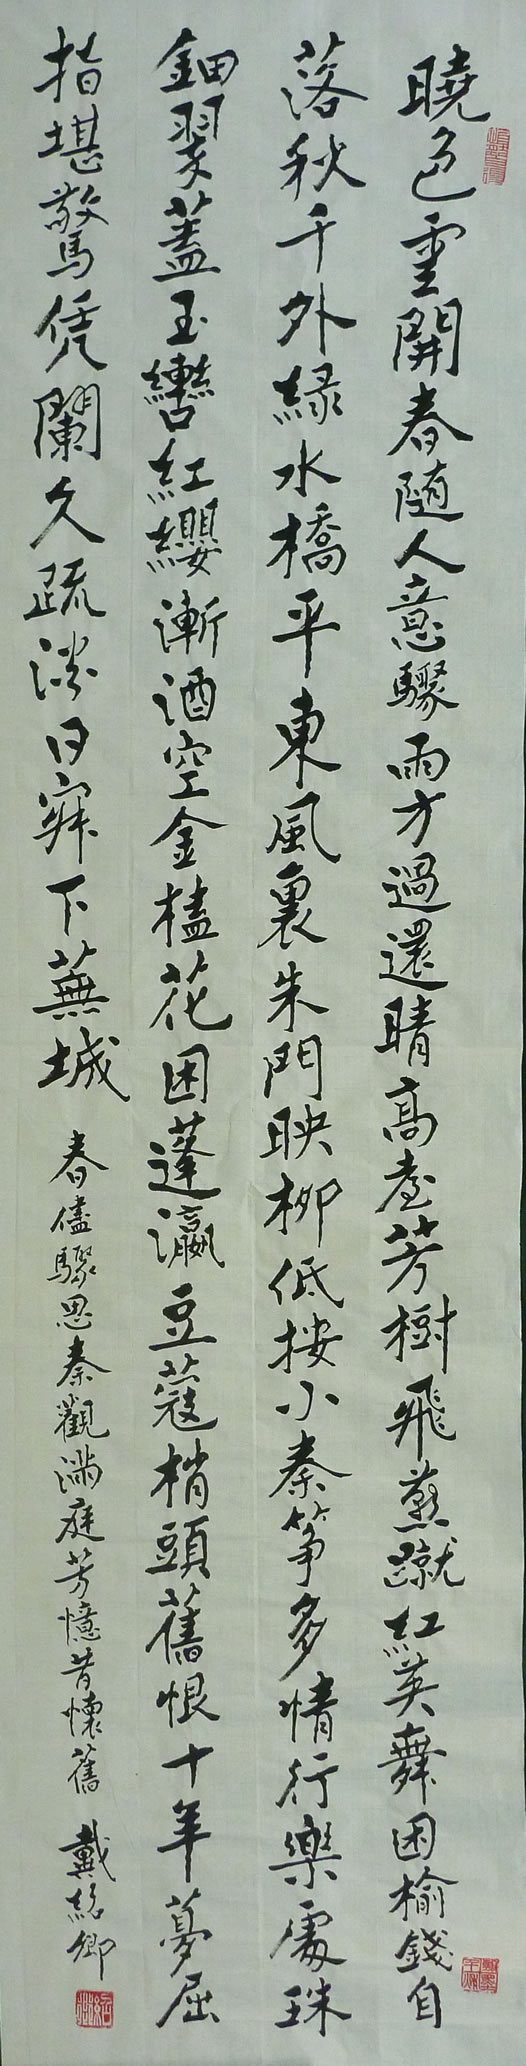 曉色雲開春隨人意驟雨方過還晴高臺芳樹飛燕蹴紅英舞困榆錢自
落秋千外綠水橋平東風裏朱門映柳低按小秦箏多情行樂處珠
鈿翠蓋玉轡紅纓漸酒空金榼花困蓬瀛豆蔻梢頭舊恨十年夢屈
指堪驚凭闌久疏淡日寂下蕪城
春儘驟思秦觀滿庭芳憶昔懷舊 戴紹卿